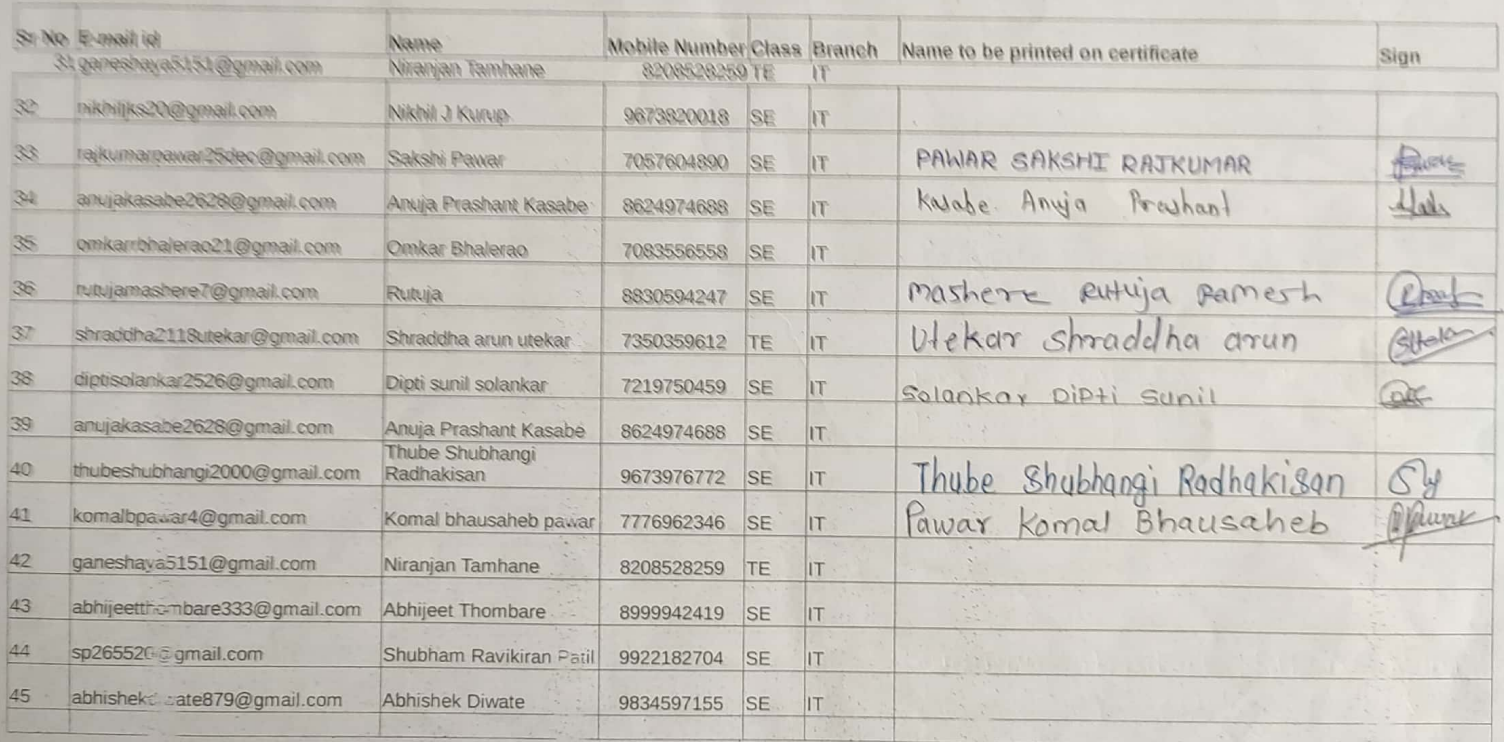 Sr No E-mail id Name Mobile Number Class Branch Name to be printed on certificate Sign
31 ganeshaya5151@gmail.com Niranjan Tamhane 8208528259 TE IT
32 nikhiljks20@gmail.com Nikhil J Kurup 9673820018 SE IT
33 rajkumarpawar25dec@gmail.com Sakshi Pawar 7057604890 SE IT PAWAR SAKSHI RAJKUMAR
34 anujakasabe2628@gmail.com Anuja Prashant Kasabe 8624974688 SE IT Kasabe. Anuja Prashant
35 omkarrbhalerao21@gmail.com Omkar Bhalerao 7083556558 SE IT
36 rutujamashere7@gmail.com Rutuja 8830594247 SE IT mashere Rutuja Ramesh
37 shraddha2118utekar@gmail.com Shraddha arun utekar 7350359612 TE IT Utekar shraddha arun
38 diptisolankar2526@gmail.com Dipti sunil solankar 7219750459 SE IT Solankar Dipti Sunil
39 anujakasabe2628@gmail.com Anuja Prashant Kasabe 8624974688 SE IT
Thube Shubhangi
40 thubeshubhangi2000@gmail.com Radhakisan 9673976772 SE IT Thube Shubhangi Radhakisan
41 komalbpawar4@gmail.com Komal bhausaheb pawar 7776962346 SE IT Pawar Komal Bhausaheb
42 ganeshaya5151@gmail.com Niranjan Tamhane 8208528259 TE IT
43 Abhijeet Thombare 8999942419 SE IT
44 Shubham Ravikiran Patil 9922182704 SE IT
45 Abhishek Diwate 9834597155 SE IT